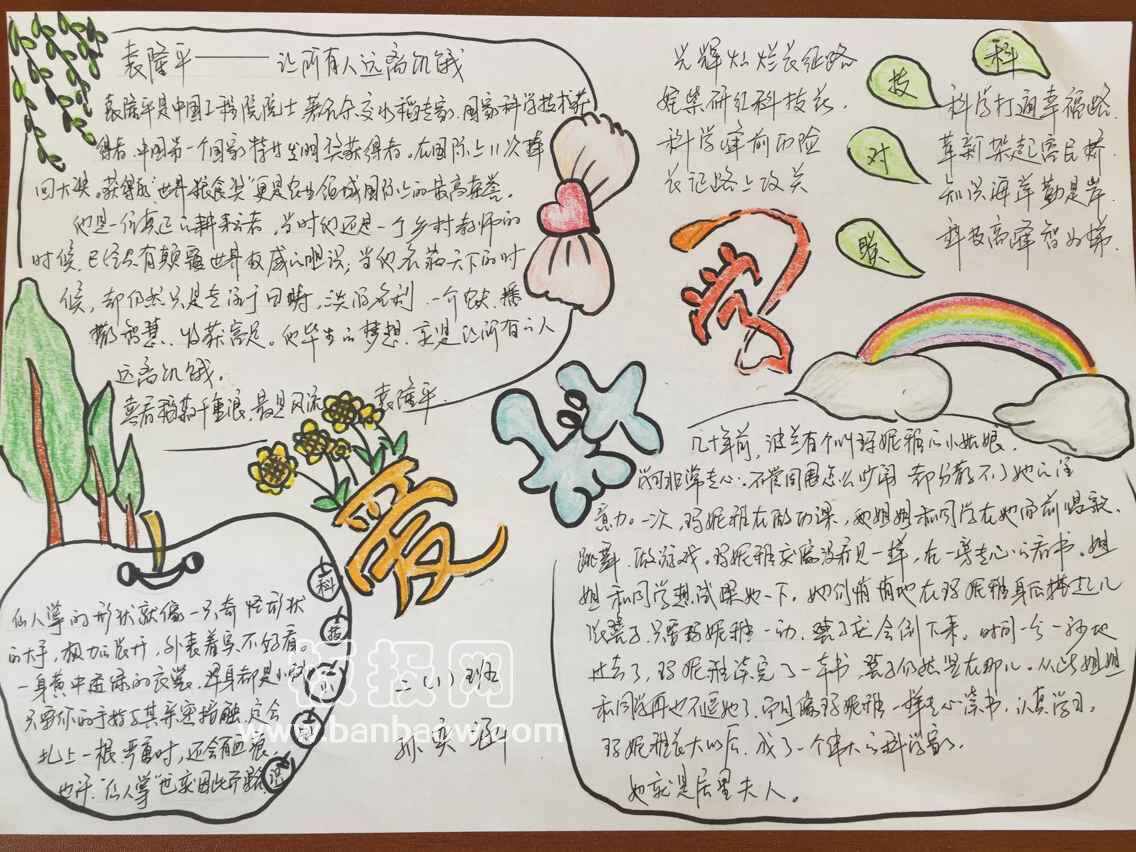 袁隆平——让所有人远离饥饿
袁隆平是中国工程院院士 著名杂交水稻专家、国家科学技术获
得者、中国第一个国家特等发明奖获得者。在国际上11次
回大奖。获得的"世界粮食奖"更是农业领域国际上的最高荣誉。
他是一位真正的耕耘者，当时他还是一个乡村教师的
时候，已经具有颠覆世界权威的胆识；当他名满天下的时
候，却仍然只是专注于田畴，淡泊名利 一介农夫，播
智慧、收获富足。他毕生的梦想，就是让所有的人
远离饥饿。
喜看稻菽千重浪，最是风流 袁隆平
光辉灿烂长征路
姹紫研红科技花
科学峰前历险
长记路上攻关
科
技
对
联
科学打通幸福路
革新架起富民桥
知识海洋勤是岸
科技高峰智为梯
爱
科
学
几十年前，波兰有个叫玛妮雅的小姑娘，
学习非常专心。不管周围怎么吵闹 都分散不了她的注
意力。一次，玛妮雅在做功课，她姐姐和同学在她面前唱歌、
跳舞、做游戏。玛妮雅就像没看见一样，在一旁专心的看书。姐
姐和同学想试探她一下。她们悄悄地在玛妮雅身后搭起几
张凳子，只要玛妮雅一动，凳子就会倒下来。时间一分一秒地
过去了，玛妮雅读完了一本书，凳子仍然竖在那儿。从此姐姐
和同学再也不逗她了，而且像玛妮雅一样专心读书，认真学习。
玛妮雅长大以后，成了一个伟大的科学家。
她就是居里夫人。
科
技
小
知
识
仙人掌的形状就像一只奇怪形状
的大手，极力张开，外表着实不好看。
一身黄中透绿的衣裳，浑身都是小刺
只要你的手指与其亲密接触，定会
扎上一根，严重时，还会
也许"仙人掌"也就因此
二(1)班
孙奕涵
板报网
www.banbaow.com